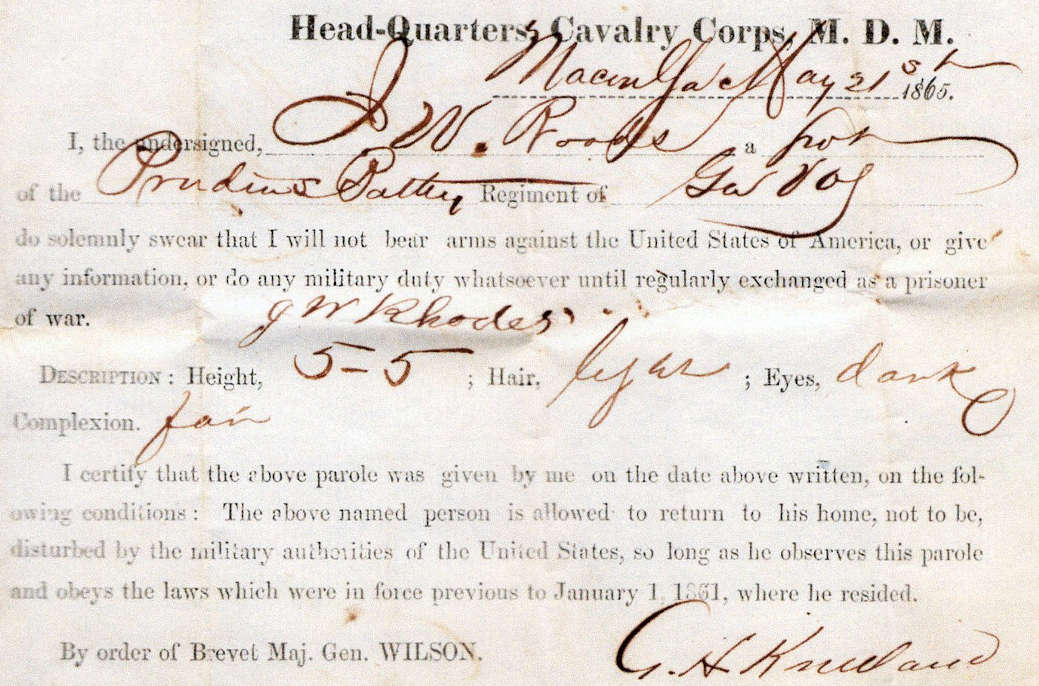 Head-Quarters, Cavalry Corps, M. D. M.
Macon Ga May 21st 1865.
I, the undersigned, J. W. Roods a
of the Prudens Battery Regiment of Ga Vol
do solemnly swear that I will not bear arms against the United States of America, or give
any information, or do any military duty whatsoever until regularly exchanged as a prisoner
of war. J W Rhodes
DESCRIPTION: Height, 5-5 ; Hair, light ; Eyes, dark
Complexion. fair
I certify that the above parole was given by me on the date above written, on the fol-
owing conditions: The above named person is allowed to return to his home, not to be,
disturbed by the military authorities of the United States, so long as he observes this parole
and obeys the laws which were in force previous to January 1, 1861, where he resided.
By order of Brevet Maj. Gen. WILSON. G. H. Kneeland